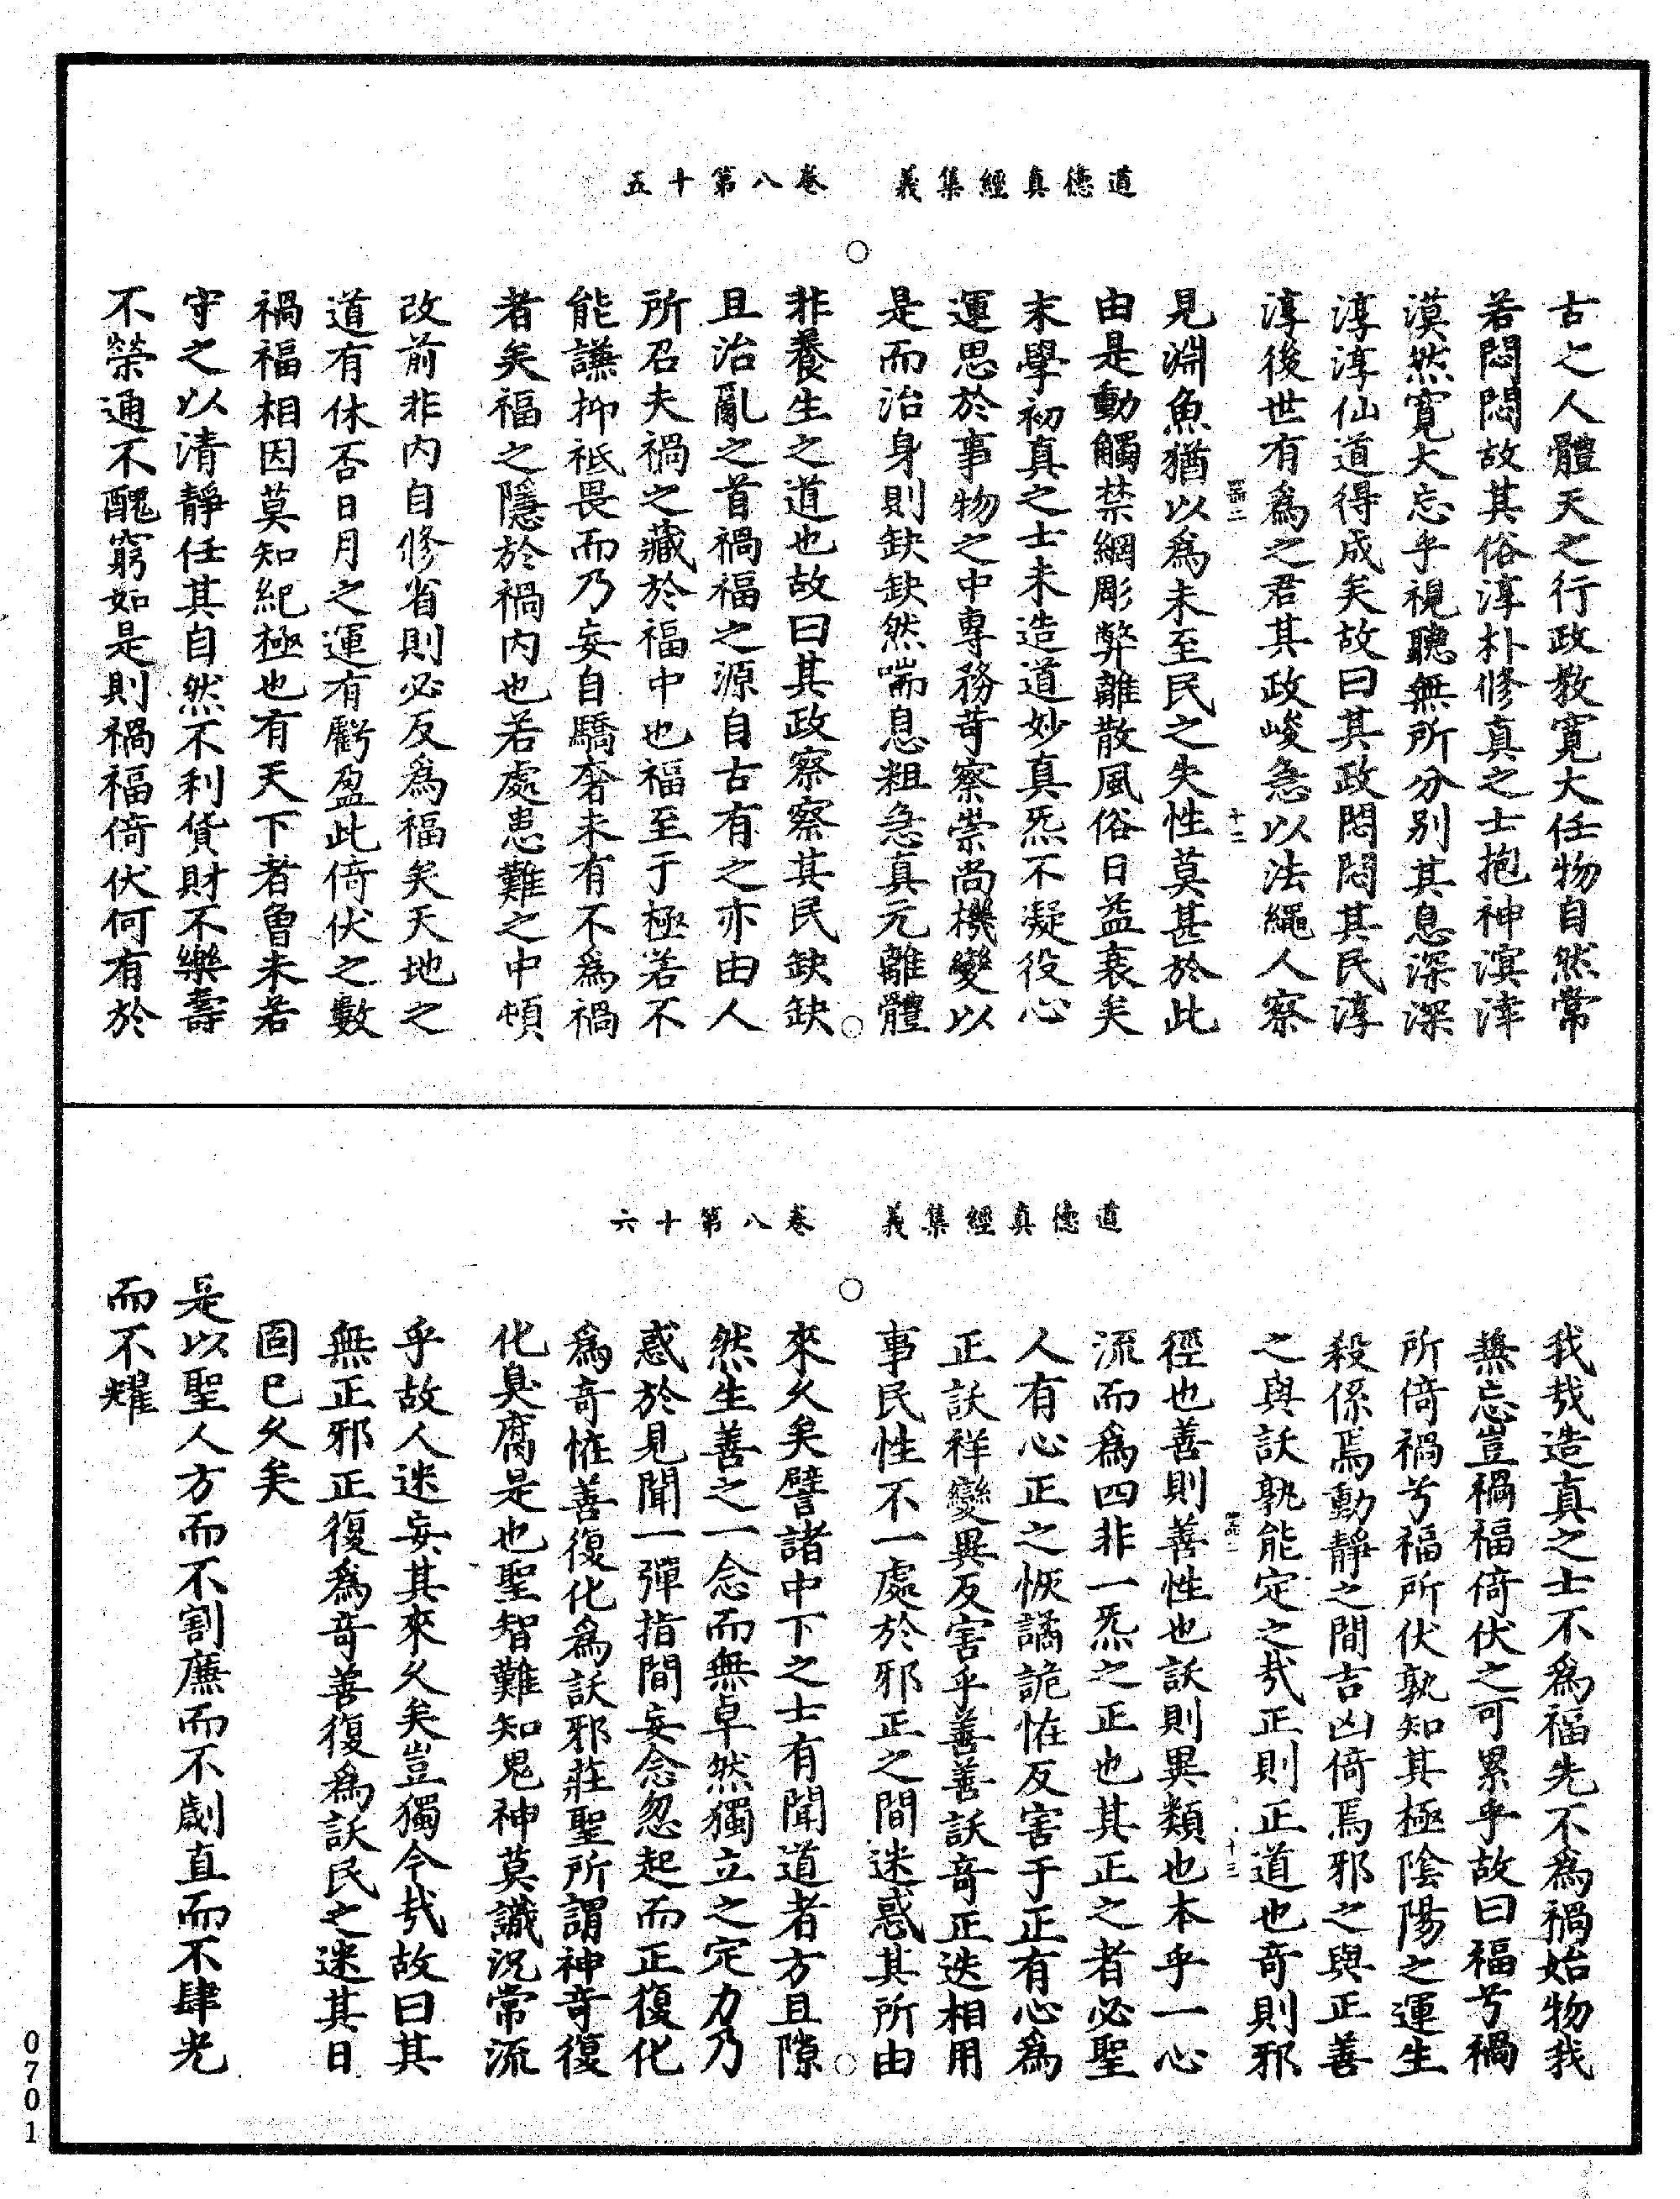 道德真經集義　卷八第十五
古之人體天之行政教寬大任物自然常
若悶悶故其俗淳朴修真之士抱神溟涬
漠然寬大忘乎視聽無所分别其息深深
淳淳仙道得成矣故曰其政悶悶其民淳
淳後世有爲之君其政峻急以法繩人察
十二
見淵魚猶以爲未至民之失性莫甚於此
由是動觸禁網彫弊離散風俗日益衰矣
末學初真之士未造道妙真炁不凝役心
運思於事物之中專務苛察崇尚機變以
是而治身則缺缺然喘息粗急真元離體
非養生之道也故曰其政察察其民缺缺
且治亂之首禍福之源自古有之亦由人
所召夫禍之藏於福中也福至于極若不
能謙抑祗畏而乃妄自驕奢未有不爲禍
者矣福之隱於禍内也若處患難之中頓
改前非内自修省則必反爲福矣天地之
道有休否日月之運有虧盈此倚伏之數
禍福相因莫知紀極也有天下者曾未若
守之以清靜任其自然不利貨財不樂壽
不榮通不醜窮如是則禍福倚伏何有於
道德真經集義　卷八第十六
我哉造真之士不爲福先不爲禍始物我
兼忘豈禍福倚伏之可累乎故曰福兮禍
所倚禍兮福所伏孰知其極陰陽之運生
殺係焉動靜之間吉凶倚焉邪之與正善
之與訞孰能定之哉正則正道也奇則邪
十三
徑也善則善性也訞則異類也本乎一心
流而爲四非一炁之正也其正之者必聖
人有心正之恢譎詭恠反害于正有心爲
正訞祥變異反害乎善善訞奇正迭相用
事民性不一處於邪正之間迷惑其所由
來久矣譬諸中下之士有聞道者方且隙
然生善之一念而無卓然獨立之定力乃
惑於見聞一彈指間妄念忽起而正復化
爲奇恠善復化爲訞邪莊聖所謂神奇復
化臭腐是也聖智難知鬼神莫識況常流
乎故人迷妄其來久矣豈獨今哉故曰其
無正邪正復爲奇善復爲訞民之迷其日
固已久矣
是以聖人方而不割廉而不劌直而不肆光
而不耀
0701